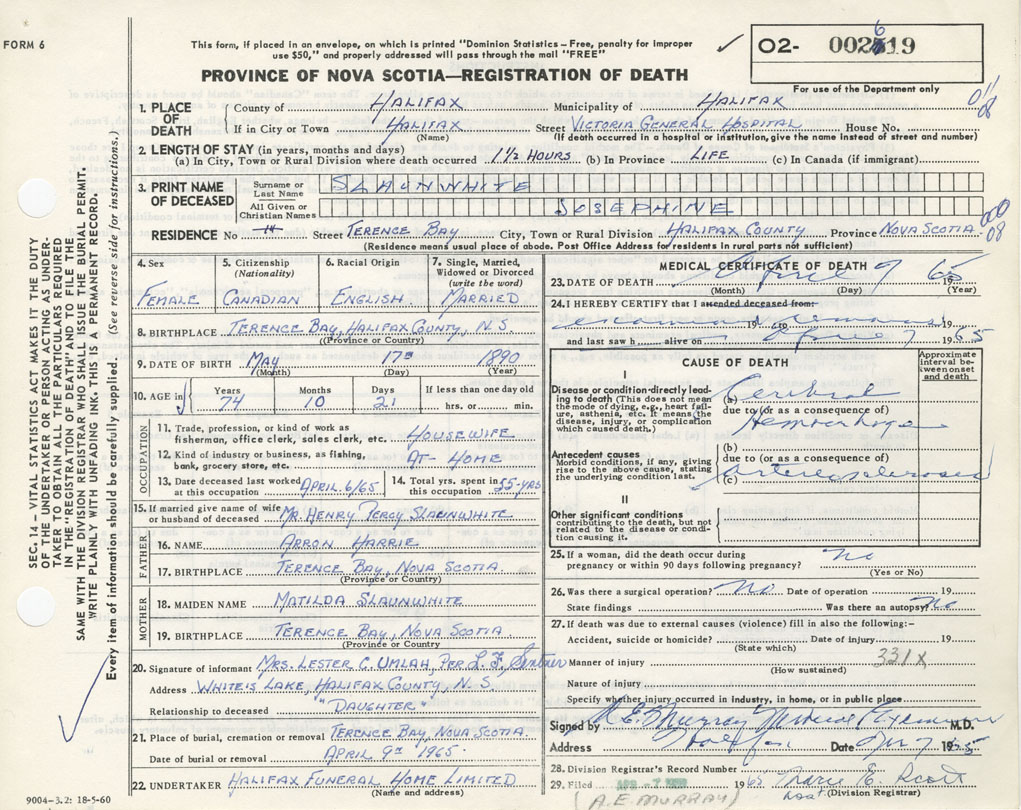 FORM 6
This form, if placed in an envelope, on which is printed "Dominion Statistics – Free, penalty for improper
use $50," and properly addressed will pass through the mail "FREE"
02- 002619
For use of the Department only
PROVINCE OF NOVA SCOTIA—REGISTRATION OF DEATH
1. PLACE OF DEATH
County of HALIFAX Municipality of HALIFAX
If in City or Town HALIFAX Street VICTORIA GENERAL HOSPITAL House No.
(Name) (If death occurred in a hospital or institution, give the name instead of street and number)
2. LENGTH OF STAY (in years, months and days)
(a) In City, Town or Rural Division where death occurred 1 1/2 HOURS (b) In Province LIFE (c) In Canada (if immigrant)
3. PRINT NAME OF DECEASED
Surname or Last Name SLAUNWHITE
All Given or Christian Names JOSEPHINE
RESIDENCE No 14 Street TERENCE BAY City, Town or Rural Division HALIFAX COUNTY Province NOVA SCOTIA
08
(Residence means usual place of abode. Post Office Address for residents in rural parts not sufficient)
4. Sex FEMALE
5. Citizenship (Nationality) CANADIAN
6. Racial Origin ENGLISH
7. Single, Married, Widowed or Divorced (write the word) MARRIED
8. BIRTHPLACE TERENCE BAY, HALIFAX COUNTY, N.S.
(Province or Country)
9. DATE OF BIRTH MAY 17th 1890
(Month) (Day) (Year)
10. AGE in
Years 74 Months 10 Days 21
If less than one day old
hrs. or min.
OCCUPATION
11. Trade, profession, or kind of work as
fisherman, office clerk, sales clerk, etc. HOUSEWIFE
12. Kind of industry or business, as fishing,
bank, grocery store, etc. AT-HOME
13. Date deceased last worked at this occupation APRIL 6/65
14. Total yrs. spent in this occupation 55-YRS
15. If married give name of wife
or husband of deceased MR. HENRY PERCY SLAUNWHITE
FATHER
16. NAME ARRON HARRIE
17. BIRTHPLACE TERENCE BAY, NOVA SCOTIA
(Province or Country)
MOTHER
18. MAIDEN NAME MATILDA SLAUNWHITE
19. BIRTHPLACE TERENCE BAY, NOVA SCOTIA
(Province or Country)
20. Signature of informant MRS. LESTER C. UMLAH, PER L. F.
Address WHITE'S LAKE, HALIFAX COUNTY, N.S.
Relationship to deceased "DAUGHTER"
21. Place of burial, cremation or removal TERENCE BAY, NOVA SCOTIA.
Date of burial or removal APRIL 9th 1965.
22. UNDERTAKER HALIFAX FUNERAL HOME LIMITED
(Name and address)
9004-3.2: 18-5-60
MEDICAL CERTIFICATE OF DEATH
23. DATE OF DEATH April 7 1965
(Month) (Day) (Year)
24. I HEREBY CERTIFY that I attended deceased from:
examined remains 19 to 19
and last saw h alive on April 7 1965
CAUSE OF DEATH
Approximate interval between onset and death
I
Disease or condition directly leading to death (This does not mean the mode of dying, e.g., heart failure, asthenia, etc. It means the disease, injury, or complication which caused death.)
(a) Cerebral
due to (or as a consequence of)
Hemorrhage
Antecedent causes
Morbid conditions, if any, giving rise to the above cause, stating the underlying condition last.
(b)
due to (or as a consequence of)
(c) Arteriosclerosis
II
Other significant conditions contributing to the death, but not related to the disease or condition causing it.
25. If a woman, did the death occur during
pregnancy or within 90 days following pregnancy? No
(Yes or No)
26. Was there a surgical operation? No Date of operation 19
State findings Was there an autopsy? No
27. If death was due to external causes (violence) fill in also the following:–
Accident, suicide or homicide? Date of injury 19
(State which)
331X
Manner of injury
(How sustained)
Nature of injury
Specify whether injury occurred in industry, in home, or in public place
Signed by A E. Murray Medical Examiner M.D.
Address Halifax Date Apr 7 1965
28. Division Registrar's Record Number
29. Filed 1965 Marie E. Scott
(Division Registrar)
(A.E. MURRAY)
SEC. 14 – VITAL STATISTICS ACT MAKES IT THE DUTY
OF THE UNDERTAKER OR PERSON ACTING AS UNDER-
TAKER TO OBTAIN ALL THE PARTICULARS REQUIRED
IN THE "REGISTRATION OF DEATH" AND TO FILE THE
SAME WITH THE DIVISION REGISTRAR WHO SHALL ISSUE THE BURIAL PERMIT.
WRITE PLAINLY WITH UNFADING INK. THIS IS A PERMANENT RECORD.
Every item of information should be carefully supplied. (See reverse side for instructions.)